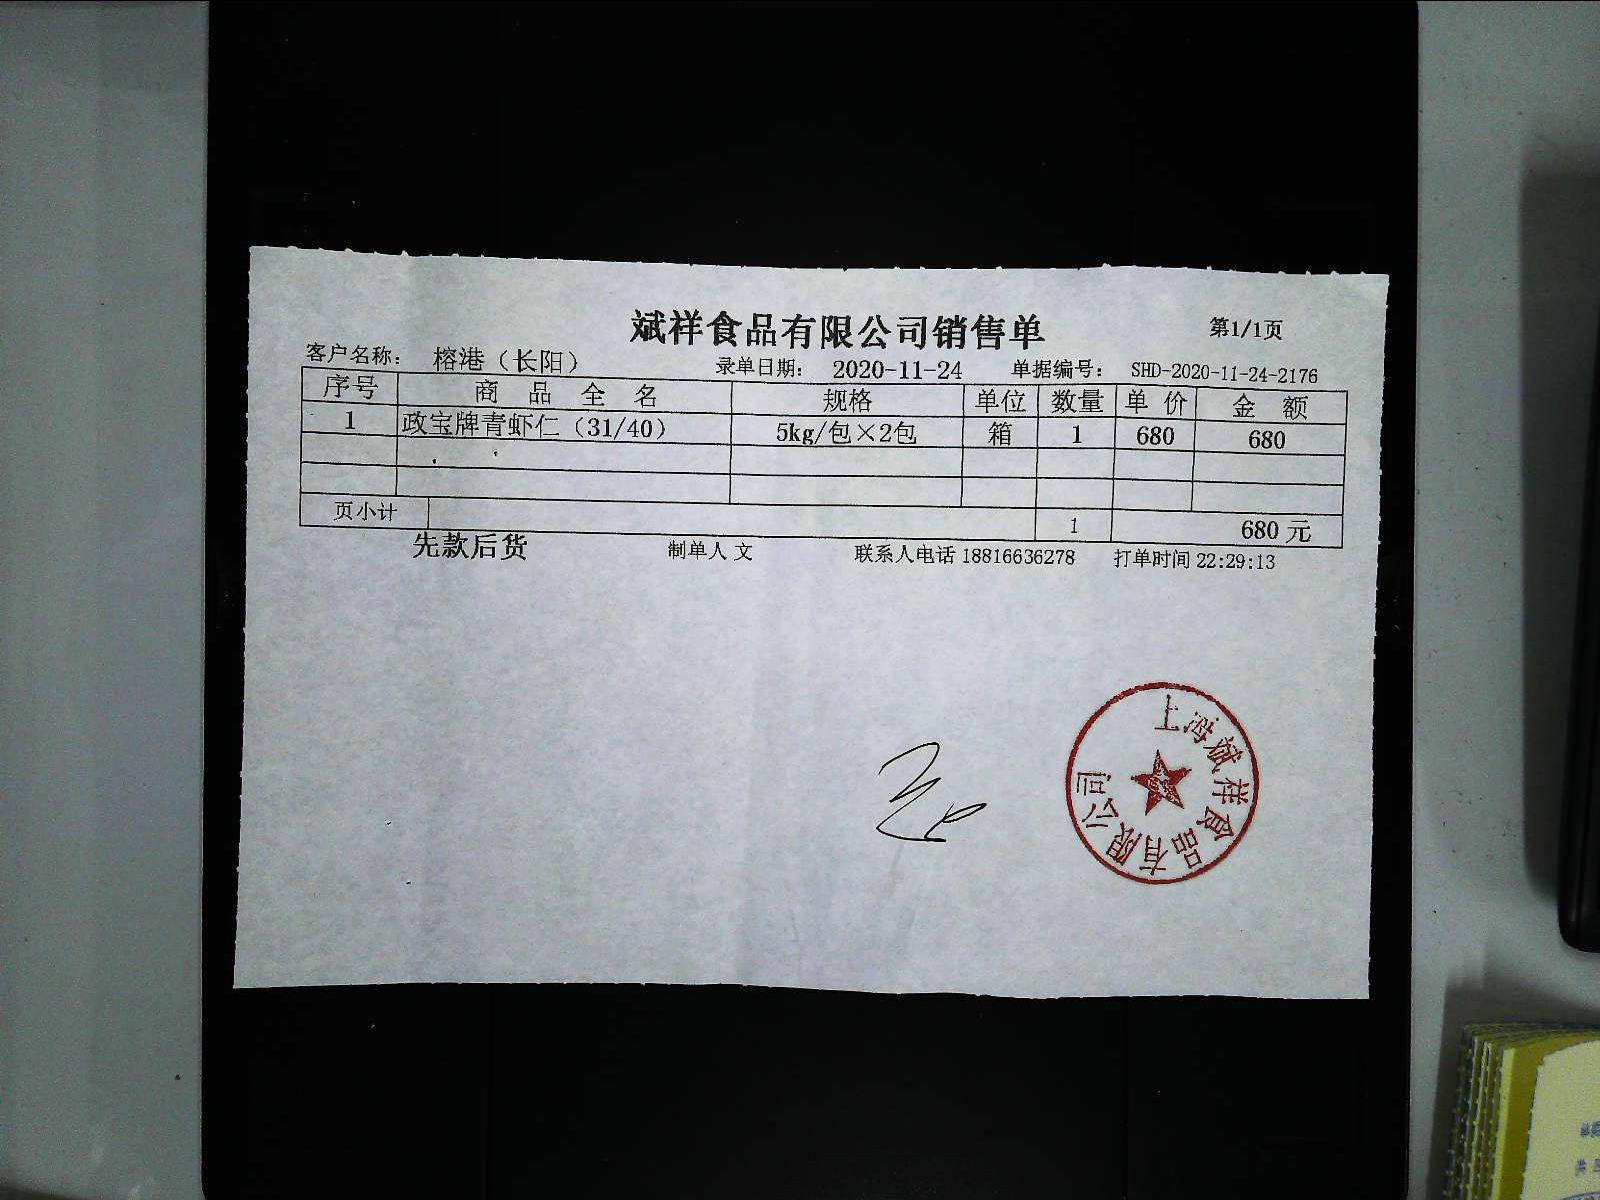 斌祥食品有限公司销售单 第1/1页
客户名称： 榕港（长阳） 录单日期： 2020-11-24 单据编号： SHD-2020-11-24-2176
序号 商品全名 规格 单位 数量 单价 金额
1 政宝牌青虾仁（31/40） 5kg/包×2包 箱 1 680 680
页小计 1 680 元
先款后货 制单人 文 联系人电话 18816636278 打单时间 22:29:13
上海斌祥食品有限公司